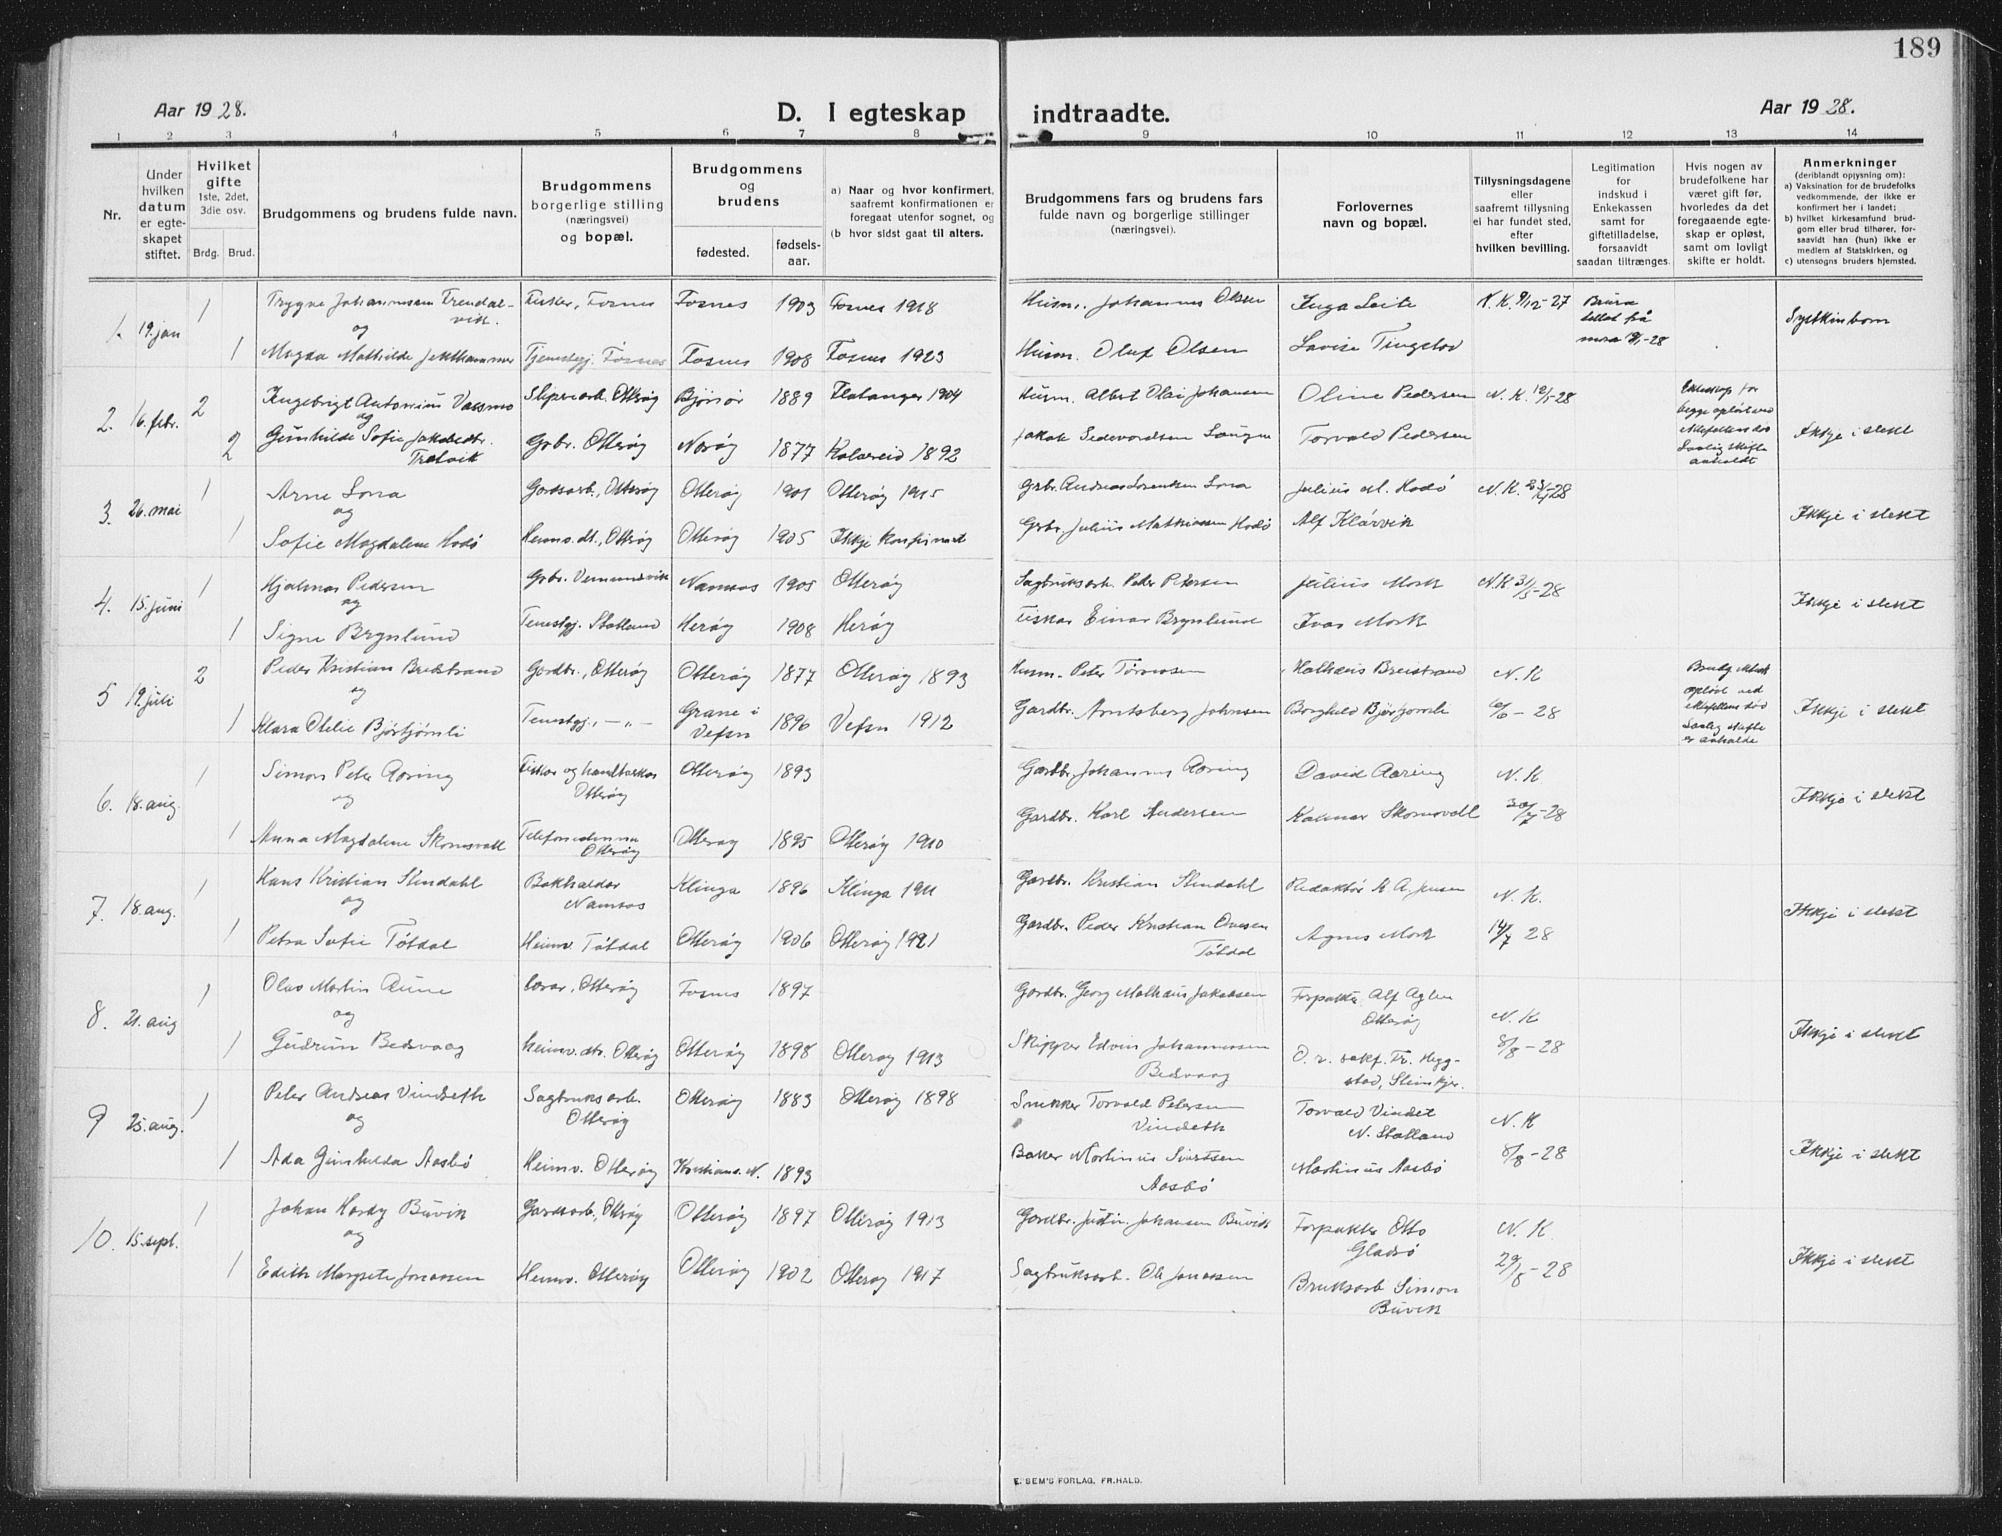 189
Aar 1928.
D. I egteskap indtraadte.
Aar 1928.
1 2 3 4 5 6 7 8 9 10 11 12 13 14
Nr.
Under hvilken datum er egteskapet stiftet.
Hvilket gifte 1ste, 2det, 3die osv.
Brdg. Brud.
Brudgommens og brudens fulde navn.
Brudgommens borgerlige stilling (næringsvei) og bopæl.
Brudgommens og brudens
fødested. fødselsaar.
a) Naar og hvor konfirmert, saafremt konfirmationen er foregaat utenfor sognet, og
(b hvor sidst gaat til alters.
Brudgommens fars og brudens fars fulde navn og borgerlige stillinger (næringsvei).
Forlovernes navn og bopæl.
Tillysningsdagene eller saafremt tillysning ei har fundet sted, efter hvilken bevilling.
Legitimation for indskud i Enkekassen samt for giftetilladelse, forsaavidt saadan tiltrænges.
Hvis nogen av brudefolkene har været gift før, hvorledes da det foregaaende egteskap er opløst, samt om lovligt skifte er holdt.
Anmerkninger (deriblandt opjysning om):
a) Vaksination for de brudefolks vedkommende, der ikke er konfirmert her i landet;
b) hvilket kirkesamfund brudgom eller brud tilhører, forsaavidt han (hun) ikke er medlem af Statskirken, og
c) utensogns bruders hjemsted.
1. 19. jan 1 Trygve Johannesen Frendalvik. Fisker, Fosnes Fosnes 1903 Fosnes 1918 Husm. Johannes Olsen Inga Seite N. K. 9/12-27 Syskinborn
og
1 Magda Mathilde Tjenestgj. Fosnes Fosnes 1908 Fosnes 1923 Husm. Oluf Olsen Lovise Tingstad
2. 16. febr. 2 Ingebrigt Antonius Vassmo Sliperiarb. Otterøy Bjørnør 1889 Flatanger 1904 Husm. Albert Olai Johansen Oline Pedersen N. K. 12/1-28 Ekteskap for begge opløst ved ektefellens død
og
2 Gunhilde Sofie Jakobsdtr. Grbr. Otterøy Nærøy 1877 Kolvereid 1892 Jakob Torvald Pedersen Ikkje i slekt
3. 26. mai 1 Arne Lona Gardsarb., Otterøy Otterøy 1901 Otterøy 1915 Grbr. Andreas Lorentsen Lona Julius M. Hodø N. K. -28
og
1 Sofie Magdalene Hodø Heimv. dt., Otterøy Otterøy 1905 Ikkje konfirmert Grbr. Julius Mathiassen Hodø Alf Klårvik Ikkje i slekt
4. 15. juni 1 Hjalmar Pedersen Grbr. Vemundvik Namsos 1905 Otterøy Sagbruksarb. Peder Petersen Julius Mork N. K 31/5-28
og
1 Signe Brynlund Tenestgj. Statland Herøy 1908 Herøy Fiskar Einar Brynlund Ivar Mork Ikkje i slekt
5 19. juli 2 Peder Kristian Breidstrand Gardbr., Otterøy Otterøy 1877 Otterøy 1893 Husm. Peter Tørrissen Mathæus Breistrand N. K
og
1 Klara Otelie Bjørtjømli Tenestgj. -"- Grane i Vefsn 1896 Vefsn 1912 Gardbr. Arntsberg Johnsen Borghild Bjørtjømli 6/6-28 opløst ved ektefellens død Ikkje i slekt
6. 18. aug. 1 Simon Peter Aaring Fiskar og handverkar Otterøy Otterøy 1893 Gardbr. Johannes Aaring David Aaring N. K
og
1 Anna Magdalene Skomsvoll Otterøy Otterøy 1895 Otterøy 1910 Gardbr. Karl Andersen Kalmar Skomsvoll 30/7-28 Ikkje i slekt
7. 18. aug. 1 Hans Kristian Slindahl Bokhaldar Namsos Klinga 1896 Klinga 1911 Gardbr. Kristian Slindahl Redaktør K. A. Jensen N. K.
og
1 Petra Sofie Tøtdal Heimv. Tøtdal Otterøy 1906 Otterøy 1921 Gardbr. Peder Kristian Ovesen Tøtdal Agnes Mork 14/7 28 Ikkje i slekt
8. 21. aug 1 Olav Martin Aune Lærar, Otterøy Fosnes 1897 Gardbr. Georg Mathæus Jakobsen Forpakter Alf Aglen Otterøy N. K
og
1 Gudrun Bedsvaag Heimv. dt. Otterøy Otterøy 1898 Otterøy 1913 Skipper Edvin Johannessen Bedsvaag O. r. sakf. Fr. Heggstad, Steinkjer. 8/8-28 Ikkje i slekt
9 25. aug. 1 Peter Andreas Vindseth Sagbruksarb. Otterøy Otterøy 1883 Otterøy 1898 Snikker Torvald Petersen Vindseth Torvald Vindset N. Statland N. K
og
1 Ada Gunhilda Aasbø Heimv. Otterøy Kristians. N. 1893 Baker Martinus Sivertsen Aasbø Martinus Aasbø 8/8-28 Ikkje i slekt
10. 15. sept. 1 Johan Hardy Buvik Gardsarb., Otterøy Otterøy 1897 Otterøy 1913 Gardbr. Justin Johansen Buvik Forpakter Otto Gladsø N. K.
og
1 Edith Margrete Jonassen Heimv. Otterøy Otterøy 1902 Otterøy 1917 Sagbruksarb. Ole Jonassen Bruksarb Simon Buvik 29/8-28 Ikkje i slekt
E. SEM'S FORLAG, FR.HALD.